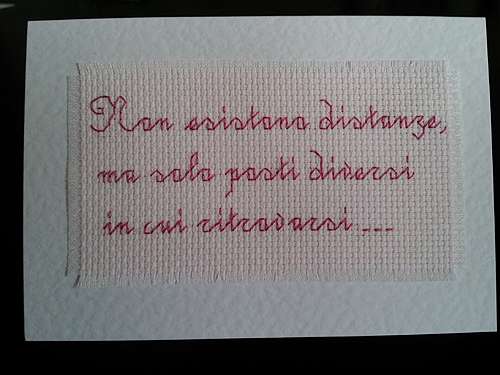 Non esistono distanze,
ma solo posti diversi
in cui ritrovarsi ...